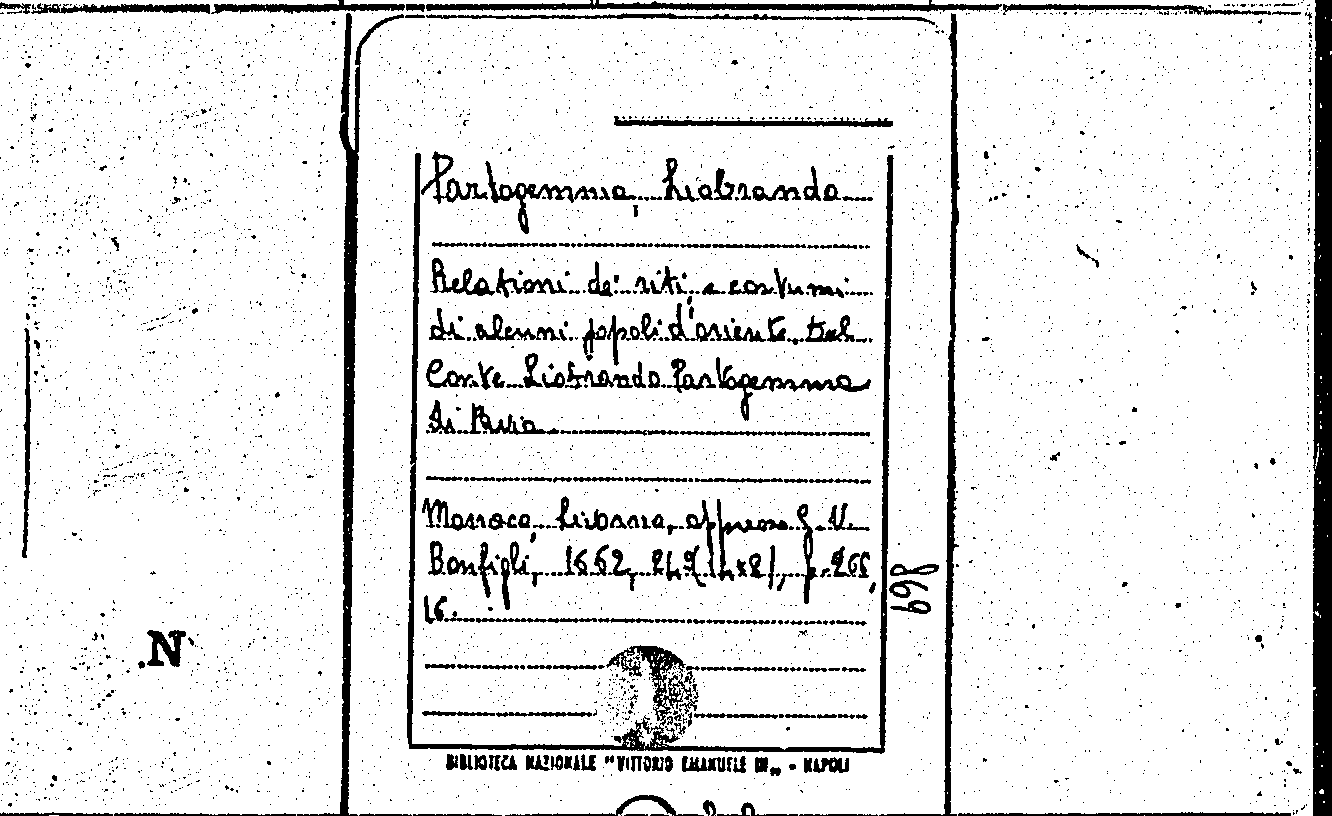 Partogemma, Liobrando
Relationi de' riti, e costumi
di alcuni popoli d'oriente del
Conte Liobrando Partogemma
di
Monaco, Livorno, appresso G.V.
Bonfigli, 1652,
16.
869
N
BIBLIOTECA NAZIONALE "VITTORIO EMANUELE III" - NAPOLI